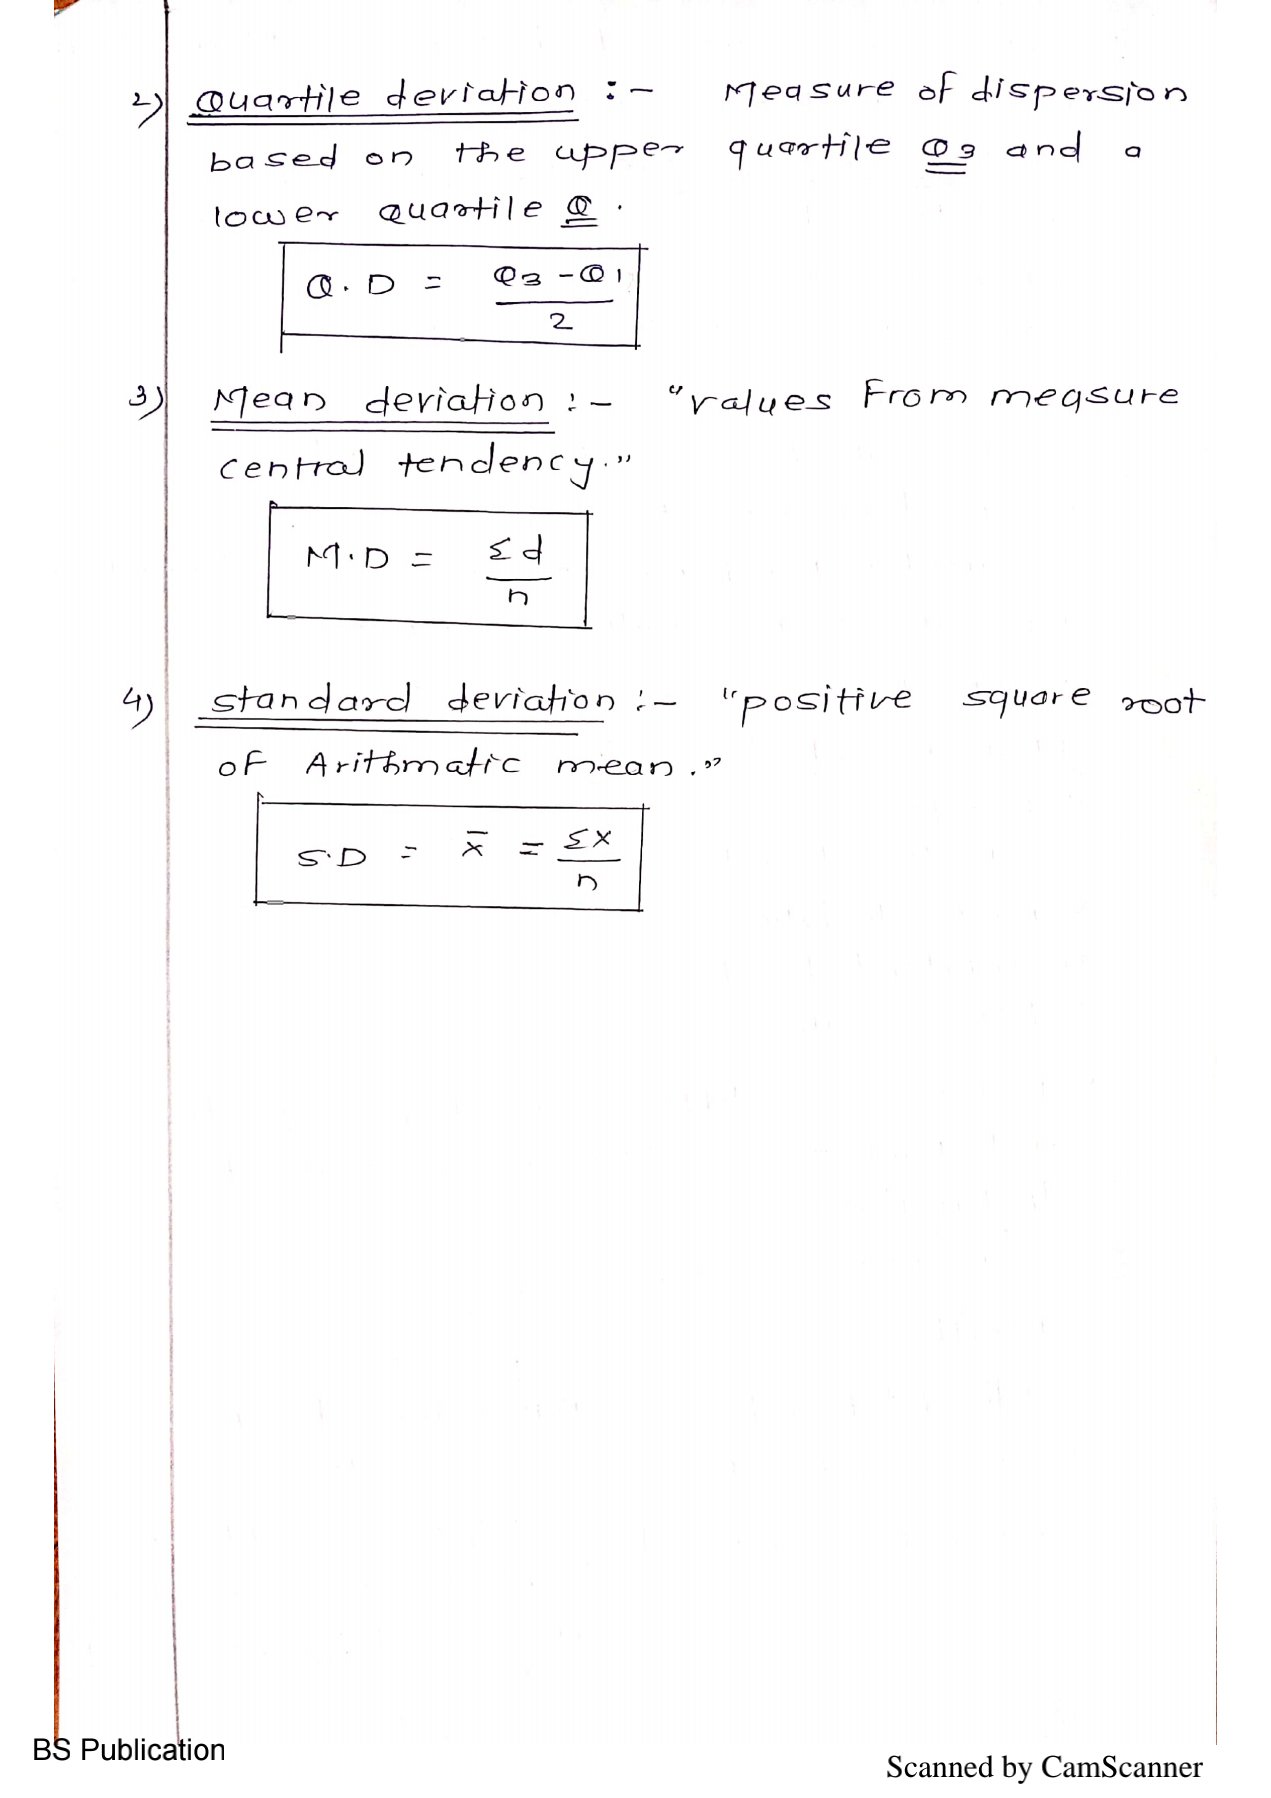 2) Quartile deviation :- Measure of dispersion
based on the upper quartile Q3 and a
lower quartile Q .
Q. D = Q3 - Q1
2
3) Mean deviation :- "values From measure
central tendency."
M.D = Σd
n
4) standard deviation :- "positive square root
of Arithmatic mean."
S.D = x̄ = Σx
n
BS Publication
Scanned by CamScanner